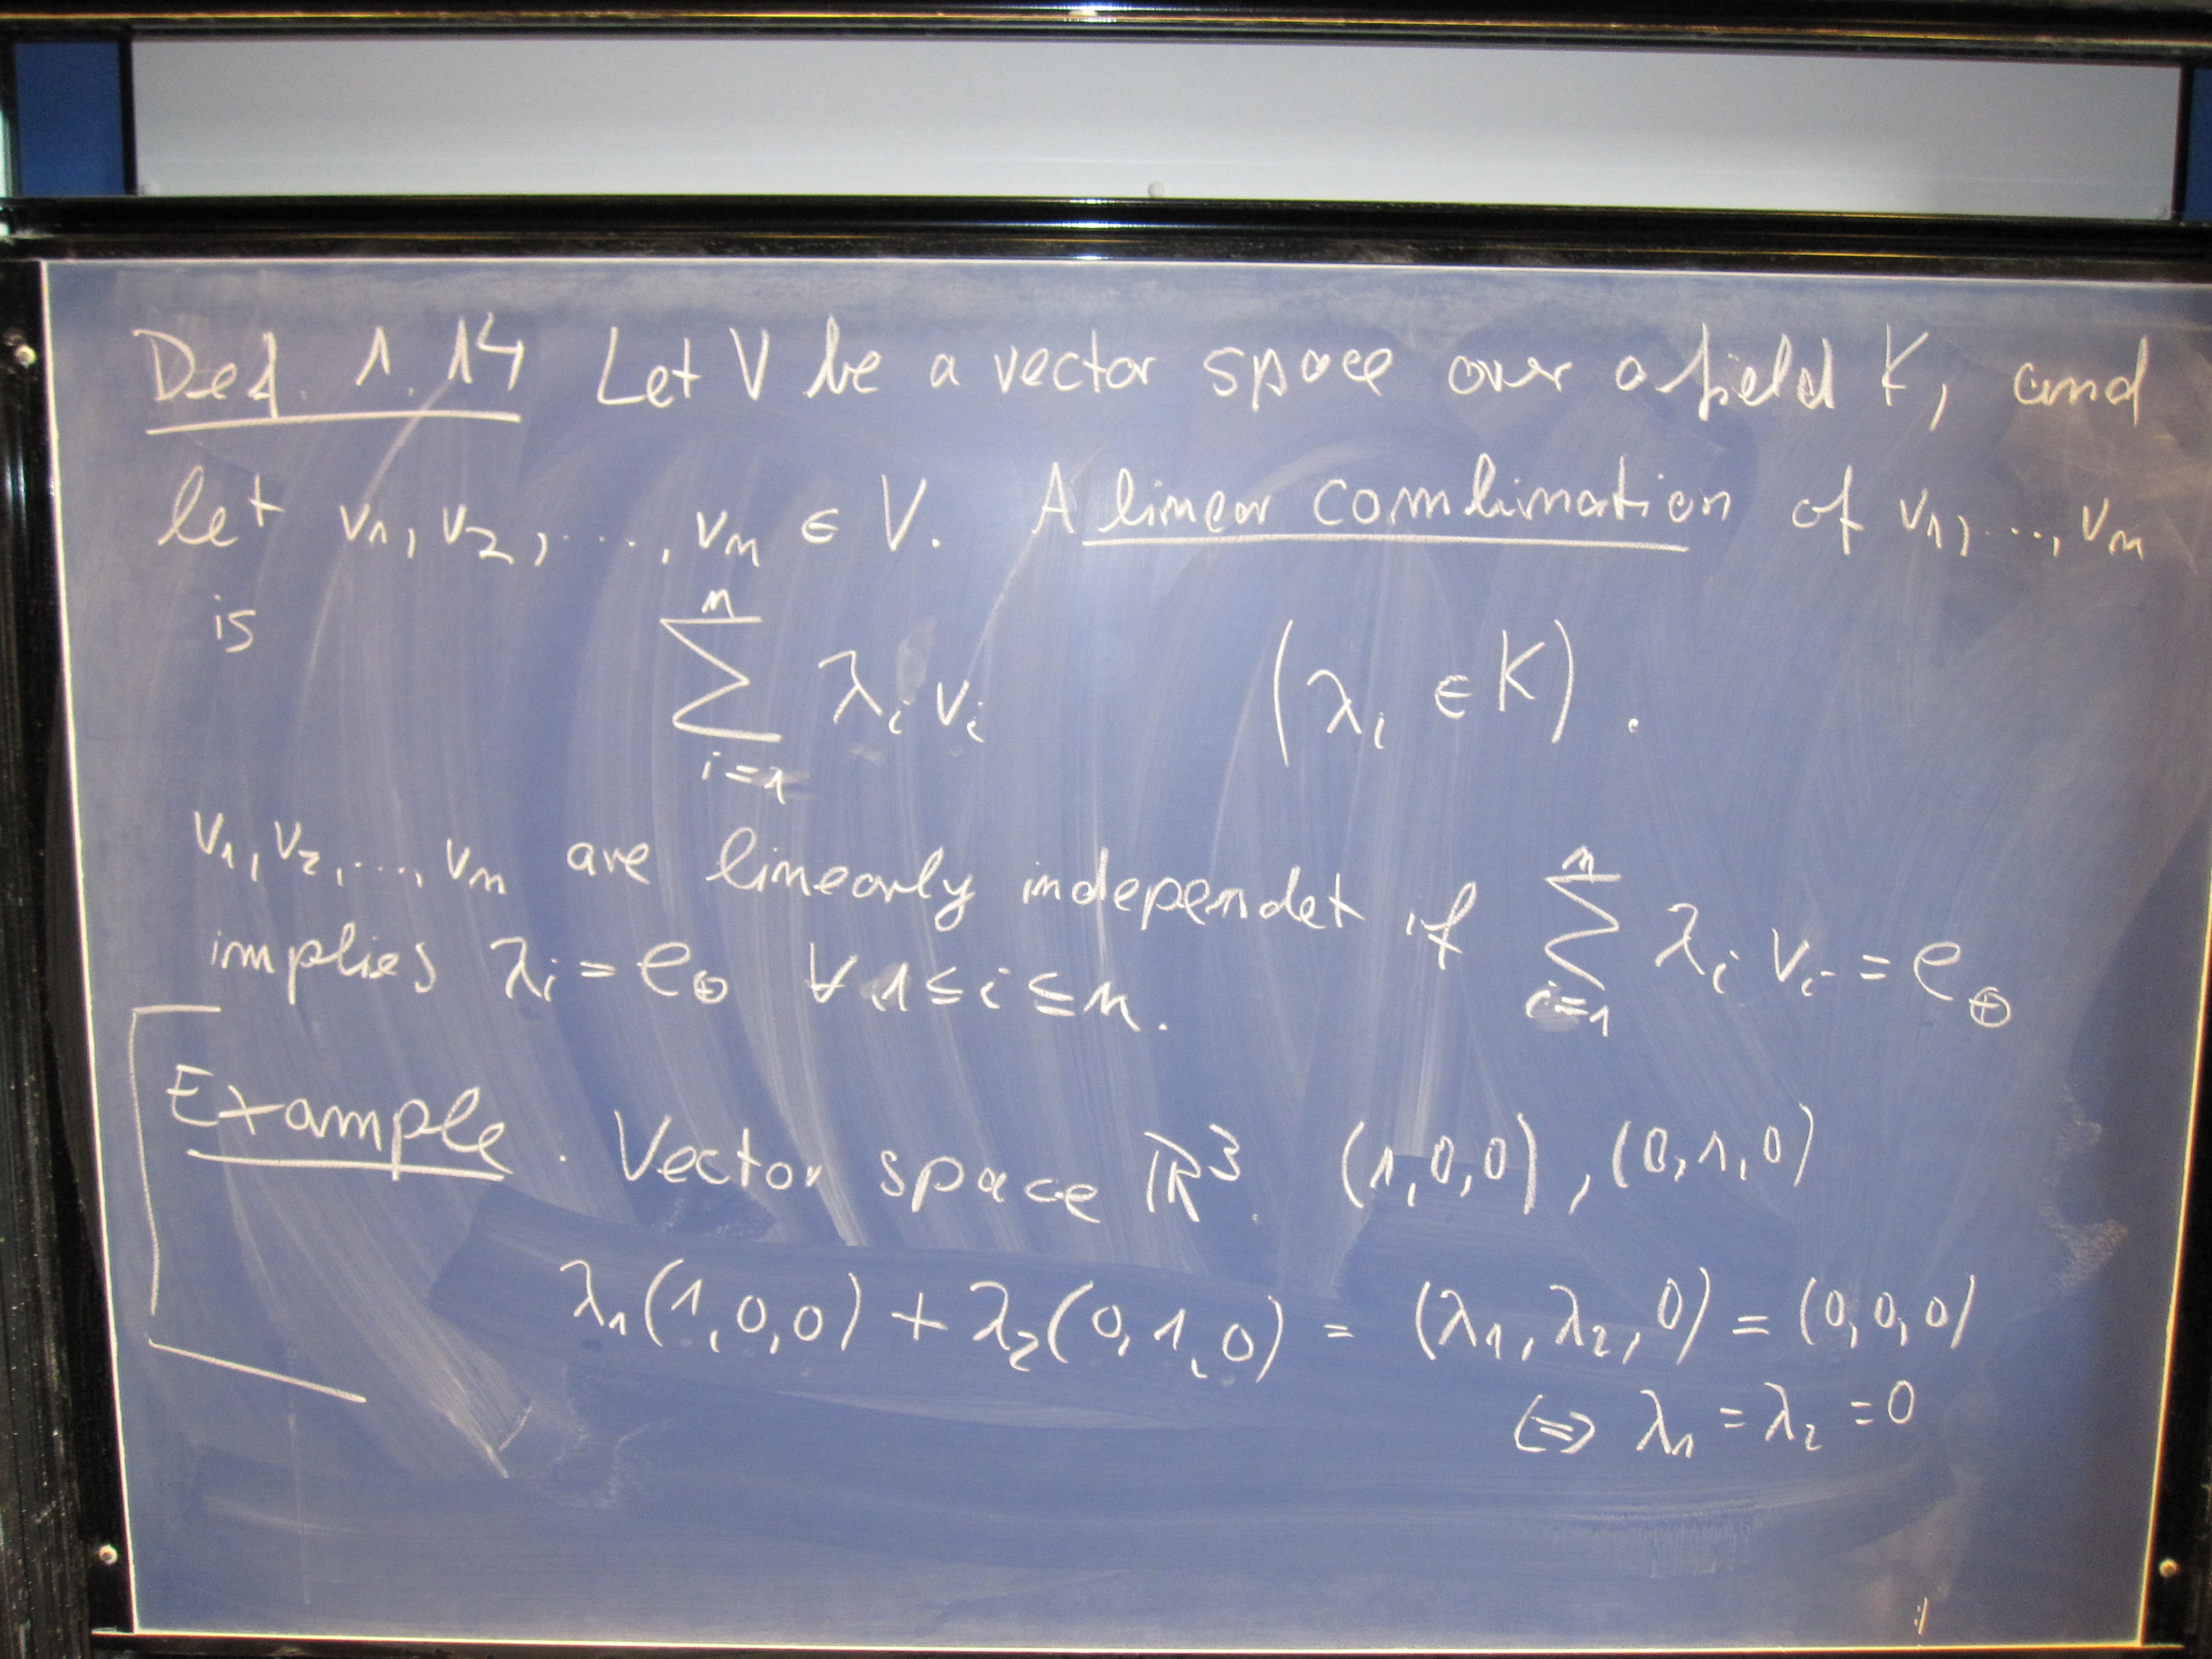 Def. 1.14 Let V be a vector space over a field K, and
let v₁, v₂, ..., vₙ ∈ V. A linear combination of v₁, ..., vₙ
is ∑ᵢ₌₁ⁿ λᵢ vᵢ (λᵢ ∈ K).
v₁, v₂, ..., vₙ are linearly independet if ∑ᵢ₌₁ⁿ λᵢ vᵢ = e_⊕
implies λᵢ = e_⊕ ∀ 1 ≤ i ≤ n.
Example. Vector space ℝ³. (1,0,0), (0,1,0)
λ₁(1,0,0) + λ₂(0,1,0) = (λ₁, λ₂, 0) = (0,0,0)
⇔ λ₁ = λ₂ = 0